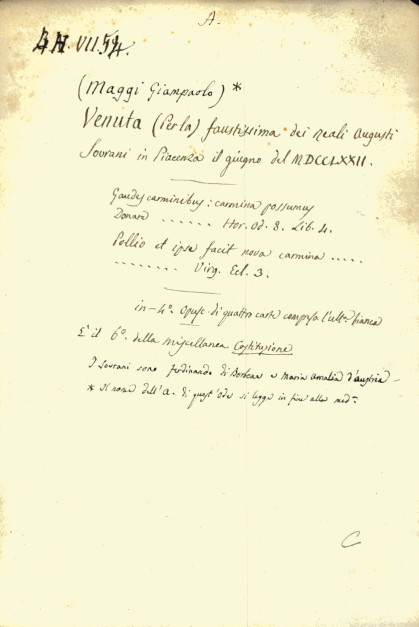 A.
AN. VII.54.
(Maggi Giampaolo) *
Venuta (Per la) faustissima dei reali Augusti
Sovrani in Piacenza il giugno del MDCCLXXII.
Gaudes carminibus: carmina possumus
Donare ...... Hor. Od. 8. Lib. 4.
Pollio et ipse facit nova carmina .....
........ Virg. Ecl. 3.
in-4º. Opusc. di quattro carte compresa l'ultª. bianca
È il 6º. della miscellanea Costituzione
I sovrani sono Ferdinando di Borbone e Maria Amalia d'Austria -
* Il nome dell'A. di quest'Ode si legge in fine alla medª.
C